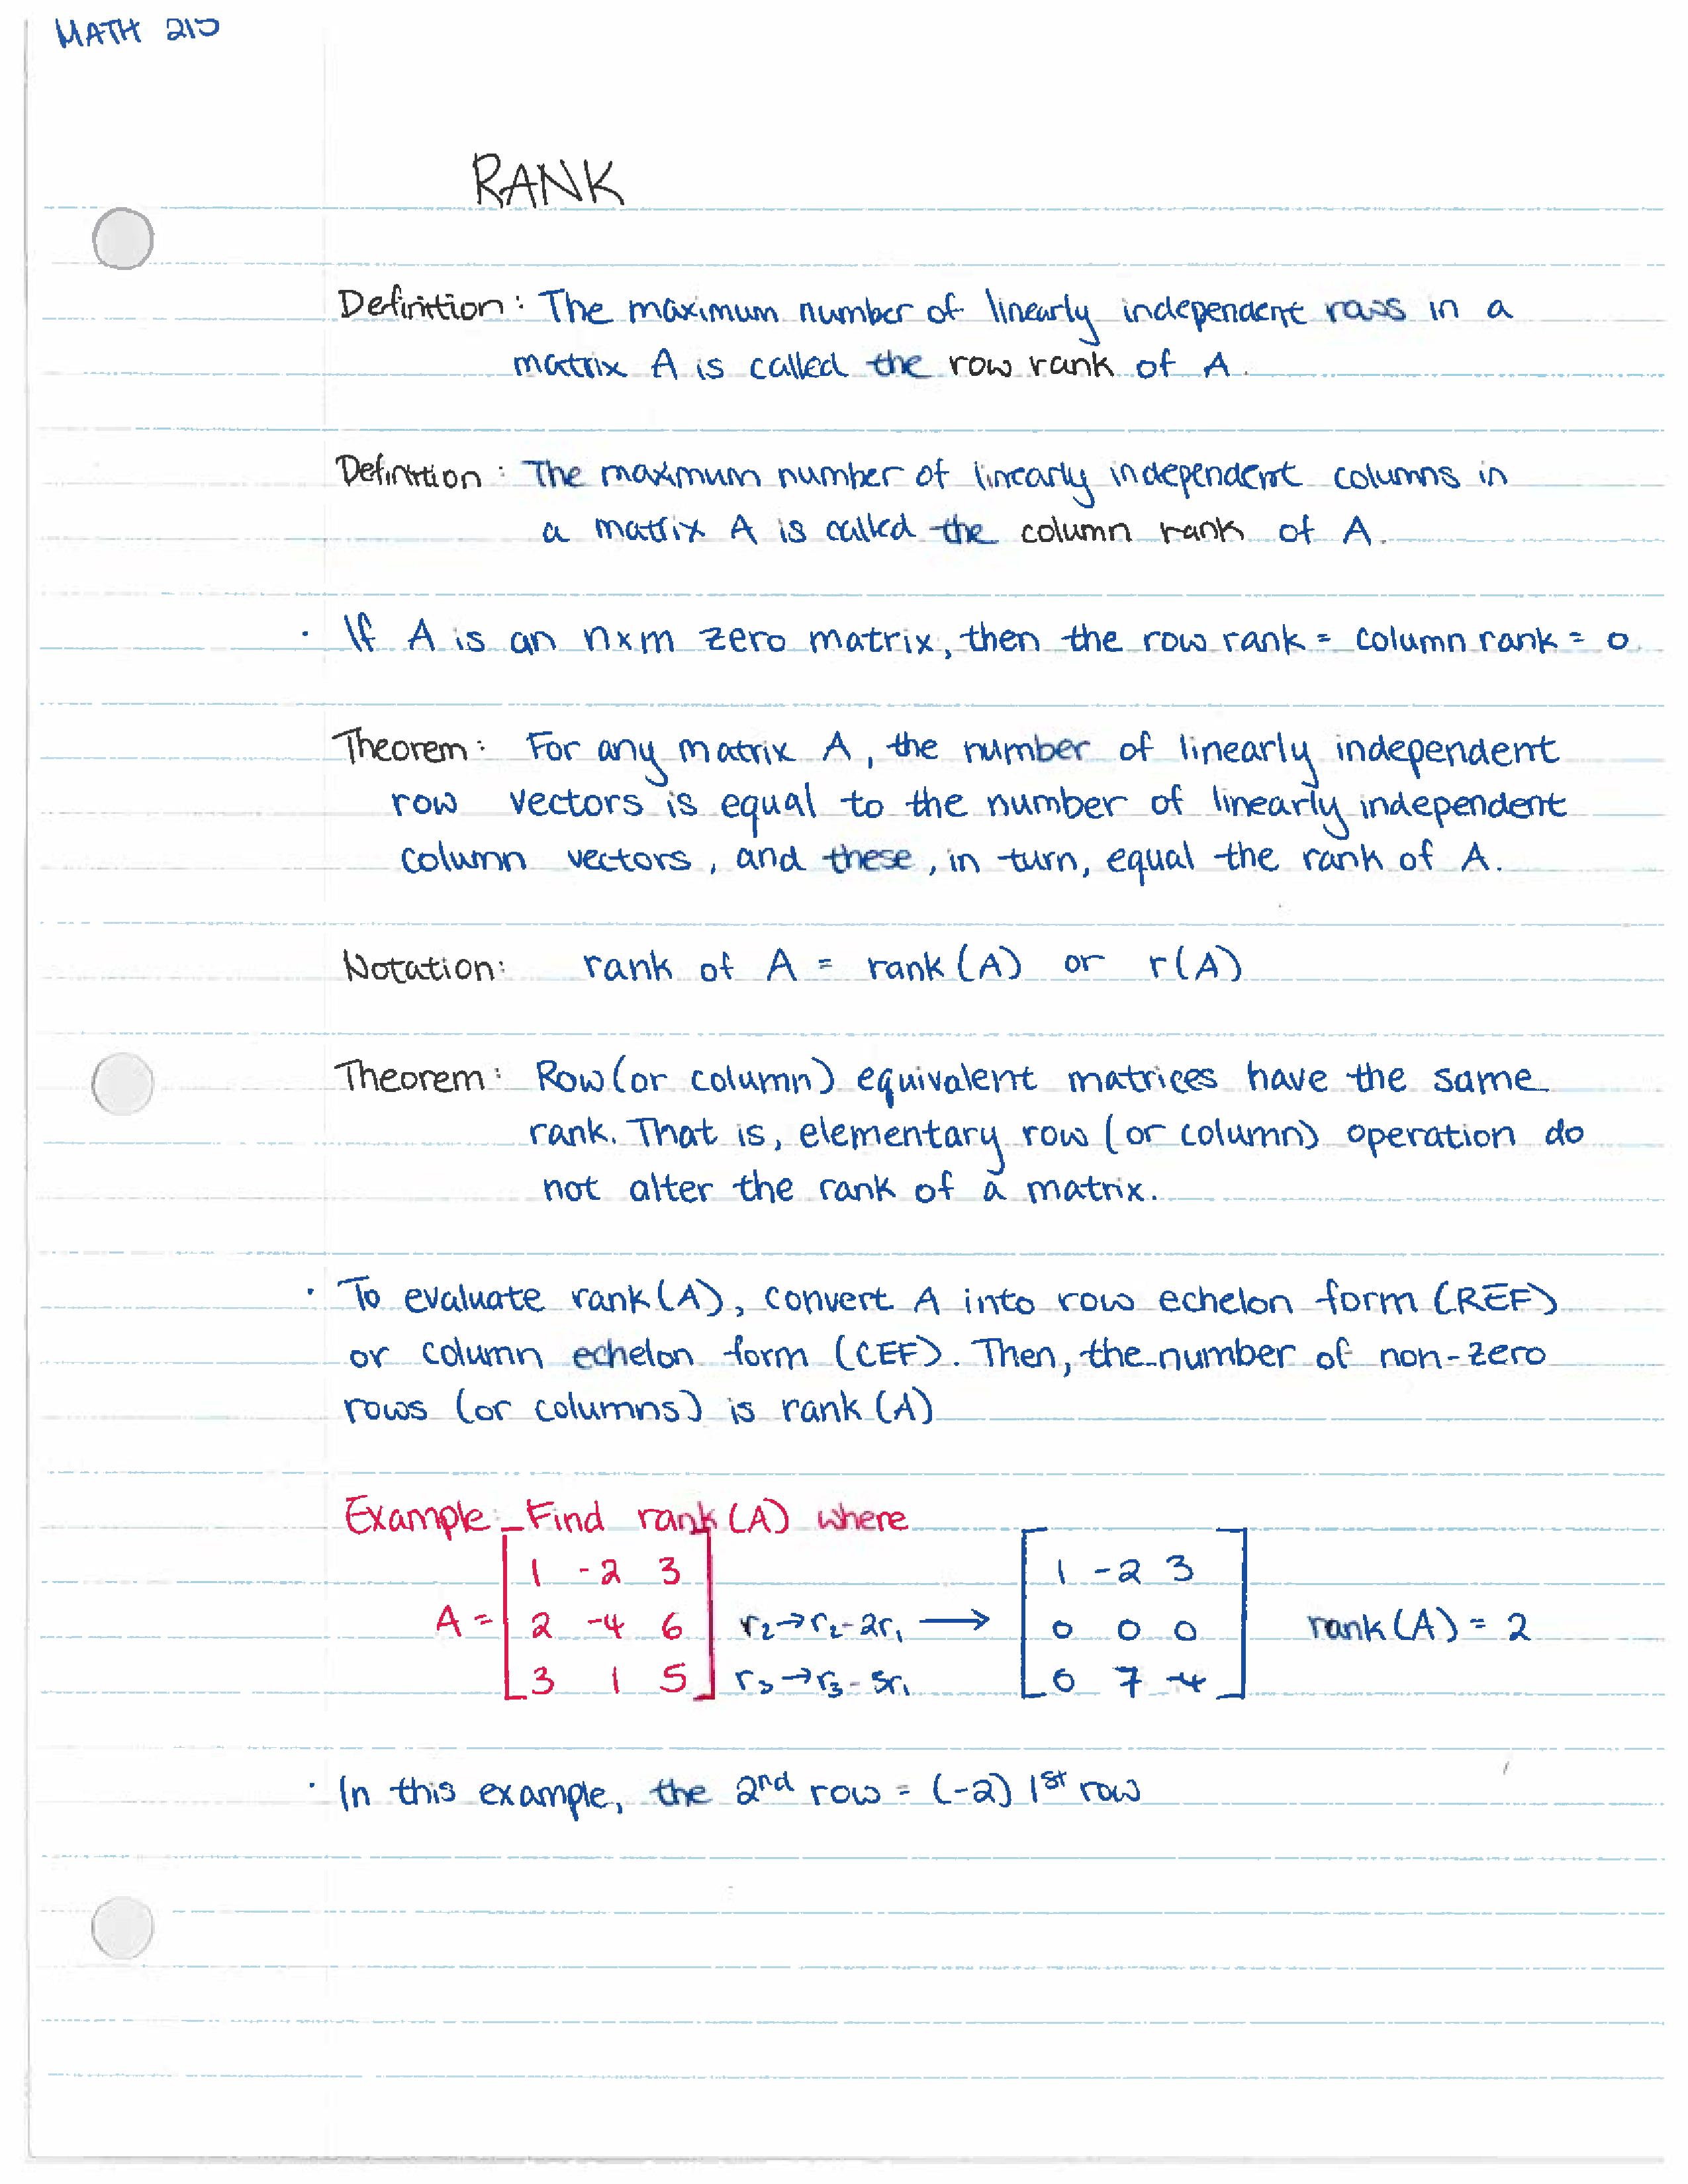 MATH 215
RANK
Definition: The maximum number of linearly independent rows in a
matrix A is called the row rank of A.
Definition: The maximum number of linearly independent columns in
a matrix A is called the column rank of A.
· If A is an n×m zero matrix, then the row rank = column rank = 0.
Theorem: For any matrix A, the number of linearly independent
row vectors is equal to the number of linearly independent
column vectors, and these, in turn, equal the rank of A.
Notation: rank of A = rank(A) or r(A)
Theorem: Row (or column) equivalent matrices have the same
rank. That is, elementary row (or column) operation do
not alter the rank of a matrix.
· To evaluate rank(A), convert A into row echelon form (REF)
or column echelon form (CEF). Then, the number of non-zero
rows (or columns) is rank(A)
Example: Find rank(A) where
1 -2 3 1 -2 3
A = 2 -4 6 r₂→r₂-2r₁ → 0 0 0 rank(A) = 2
3 1 5 r₃→r₃-3r₁ 0 7 -4
· In this example, the 2nd row = (-2) 1st row